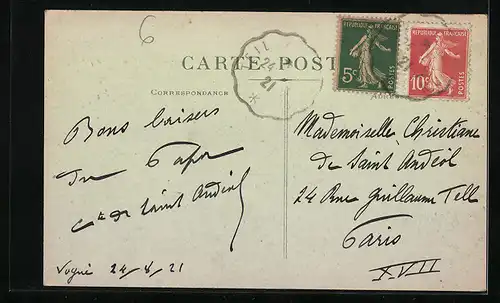 6
CARTE POST
CORRESPONDANCE
24
21
REPUBLIQUE FRANÇAISE
5c
POSTES
REPUBLIQUE FRANÇAISE
10c
POSTES
Bons baisers
du Papa
Cte de Saint Andéol
Vogué 24/8/21
Mademoiselle Christiane
de Saint Andéol
24 Rue Guillaume Tell
Paris
XVII